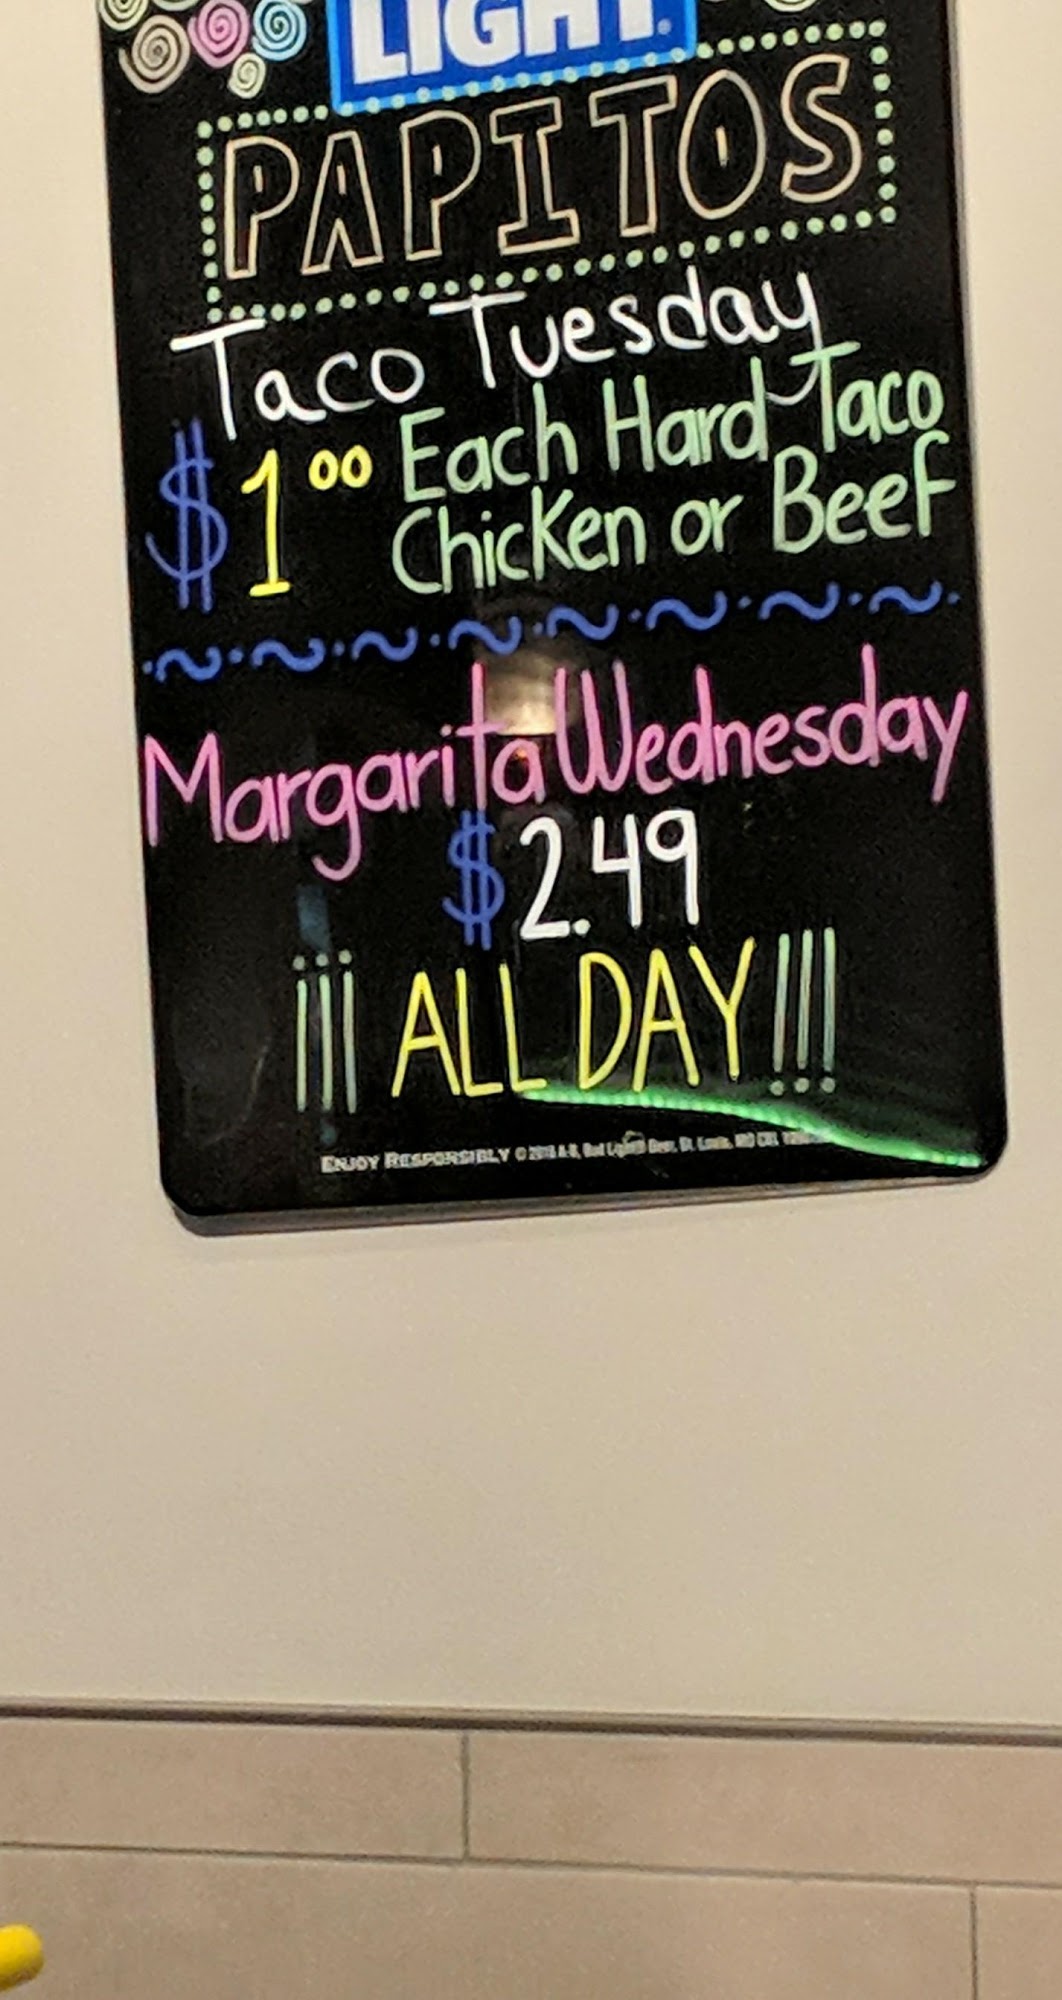 LIGHT
PAPITOS
Taco Tuesday
$1.00 Each Hard Taco
Chicken or Beef
Margarita Wednesday
$2.49
¡¡¡ ALL DAY!!!
ENJOY RESPONSIBLY © 2018 A-B, Bud Light® Beer, St. Louis, MO